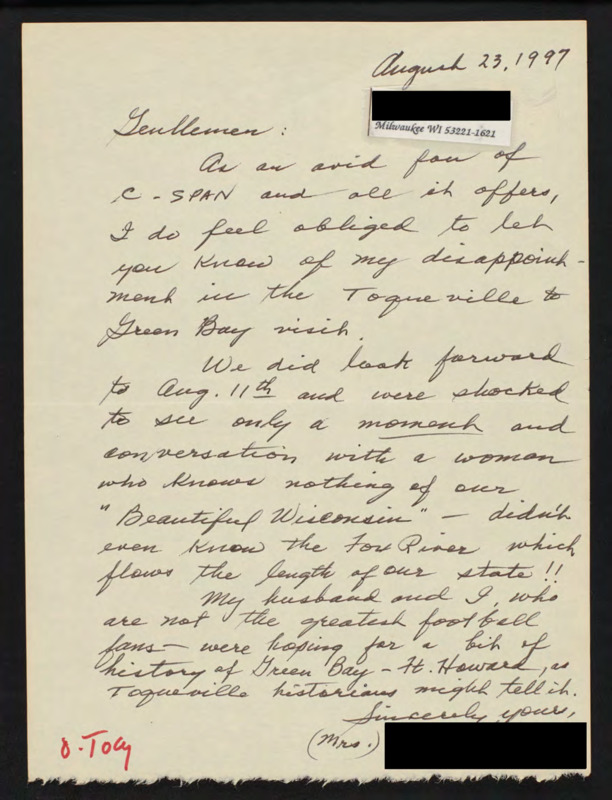 August 23, 1997
Milwaukee WI 53221-1621
Gentlemen:
As an avid fan of
C-SPAN and all it offers,
I do feel obliged to let
you know of my disappoint-
ment in the Toqueville to
Green Bay visit.
We did look forward
to Aug. 11th and were shocked
to see only a moment and
conversation with a woman
who knows nothing of our
"Beautiful Wisconsin" - didn't
even know the Fox River which
flows the length of our state!!
My husband and I, who
are not the greatest football
fans - were hoping for a bit of
history of Green Bay - Ft. Howard, as
Toqueville historians might tell it.
Sincerely yours,
(Mrs.)